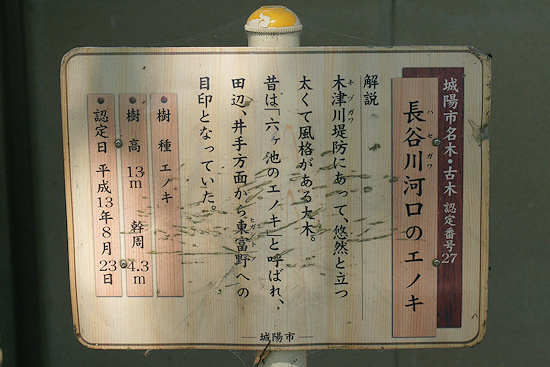 城陽市名木・古木 認定番号27
長谷川河口のエノキ
ハセガワ
解説
木津川堤防にあって、悠然と立つ
キヅガワ
太くて風格がある大木。
昔は「六ヶ池のエノキ」と呼ばれ、
田辺、井手方面から東富野への
ヒガシトノ
目印となっていた。
樹種 エノキ
樹高 13m 幹周 4.3m
認定日 平成13年8月23日
城陽市